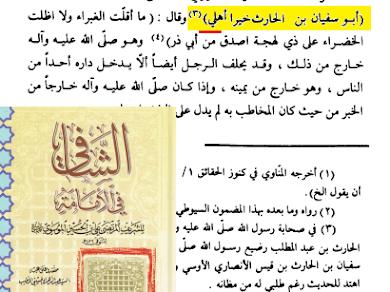 (أبو سفيان بن الحارث خيرا أهلي)(٣) وقال : ( ما أقلّت الغبراء ولا اظلت
الخضراء على ذي لهجة اصدق من أبي ذر )(٤) وهو صلّى الله عليه وآله
خارج من ذلك ، وقد يحلف الرجل أيضاً ألّا يدخل داره أحداً من
الناس ، وهو خارج من يمينه ، وإذا كان صلّى الله عليه وآله خارجاً من
الخبر من حيث كان المخاطب به لم يدل على
(١) أخرجه المنّاوي في كنوز الحقائق ١/
أن يقول الخ).
(٢) رواه وما بعده بهذا المضمون السيوطي
(٣) في صحابة رسول الله صلّى الله عليه و
الحارث بن عبد المطلب رضيع رسول الله ص
سفيان بن الحارث بن قيس الأنصاري الأوسي و
اهتد للحديث رغم طلبي له من مظانه .
الشافي
في الإمامة
للشريف المرتضى علي بن الحسين الموسوي